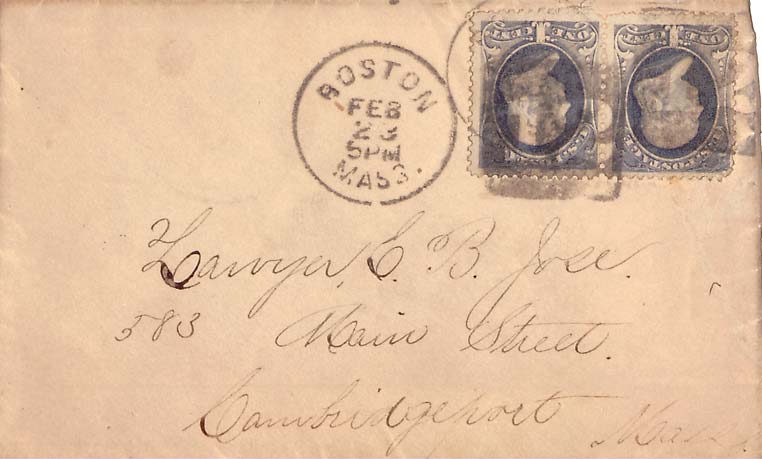 BOSTON
FEB
23
5PM
MASS.
ONE CENT
ONE CENT
U.S. POSTAGE
U.S. POSTAGE
Lawyer, E. B. Jose.
583 Main Street.
Cambridgeport
Mass